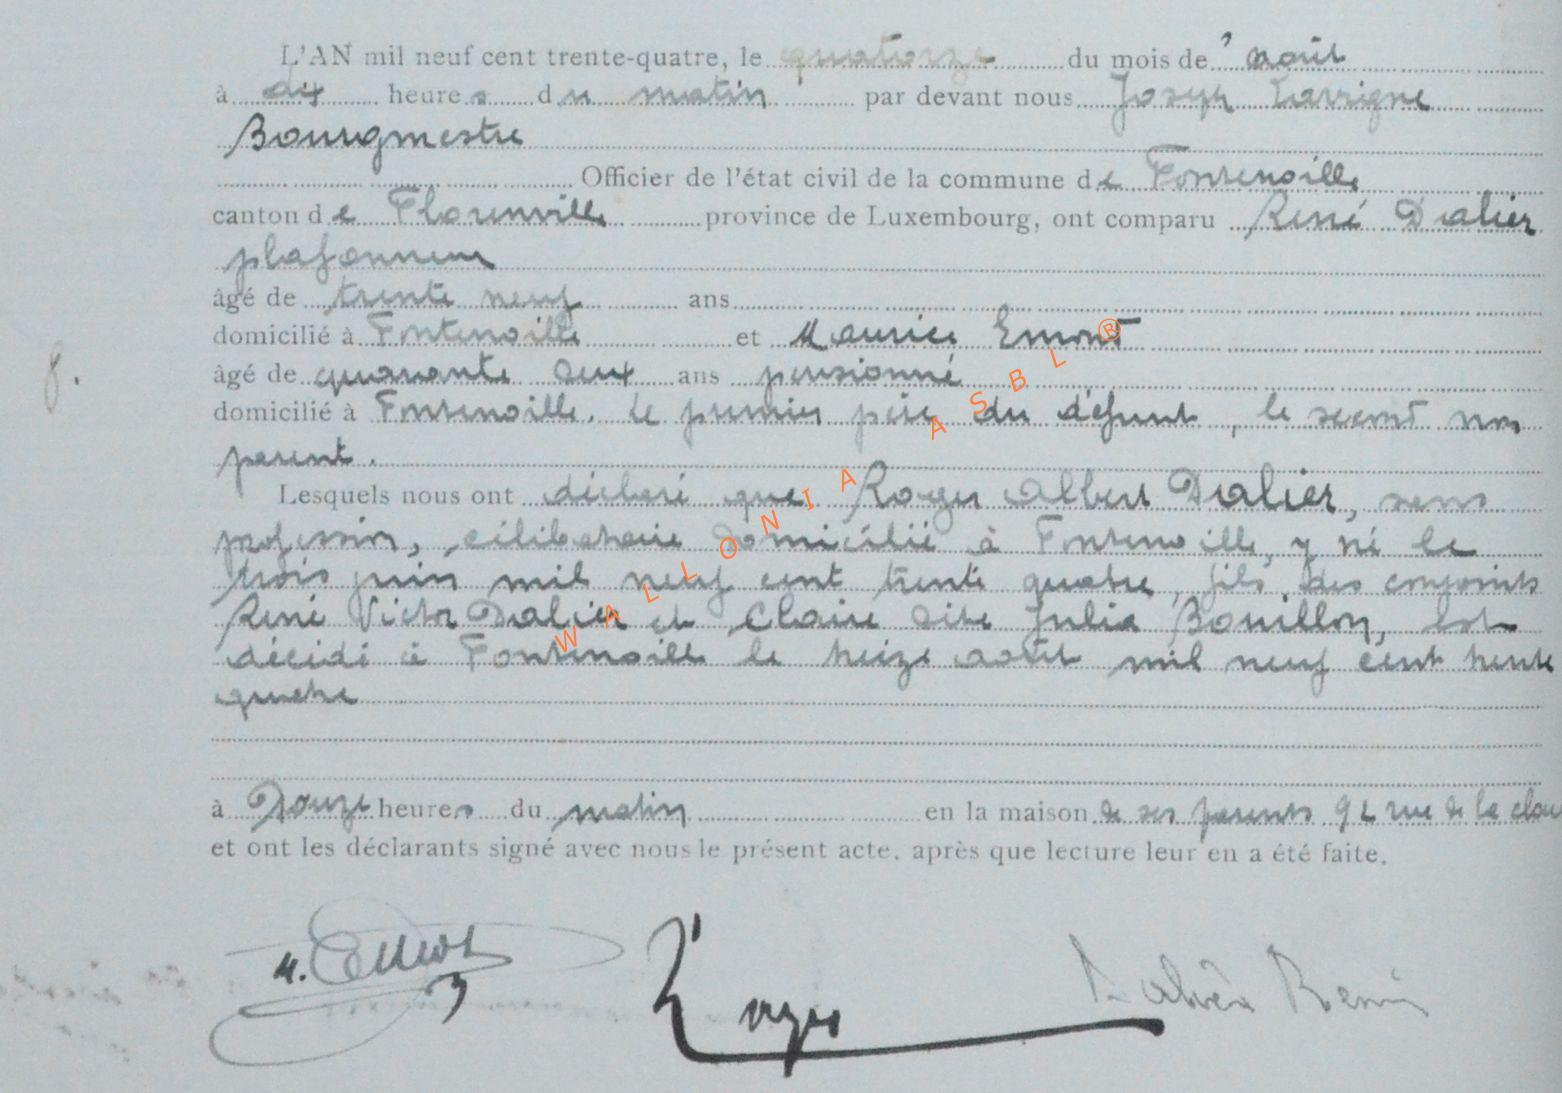 L'AN mil neuf cent trente-quatre, le quatorze du mois de août
à dix heures du matin par devant nous Joseph Lavigne
Bourgmestre
Officier de l'état civil de la commune de Fontenoille
canton de Florenville province de Luxembourg, ont comparu René Dalier
plafonneur
âgé de trente neuf ans
domicilié à Fontenoille et Maurice Emond
âgé de quarante deux ans pensionné
8. domicilié à Fontenoille. Le premier père du défunt, le second non
parent.
Lesquels nous ont déclaré que Roger Albert Dalier, sans
profession, célibataire domicilié à Fontenoille, y né le
trois juin mil neuf cent trente quatre, fils des conjoints
René Victor Dalier et Claire dite Julia Bouillon, est
décédé à Fontenoille le treize août mil neuf cent trente
quatre
à Douze heures du matin en la maison de ses parents 92 rue de la
et ont les déclarants signé avec nous le présent acte, après que lecture leur en a été faite.
M. Emond Dalier René
WALLONIA ASBL ®